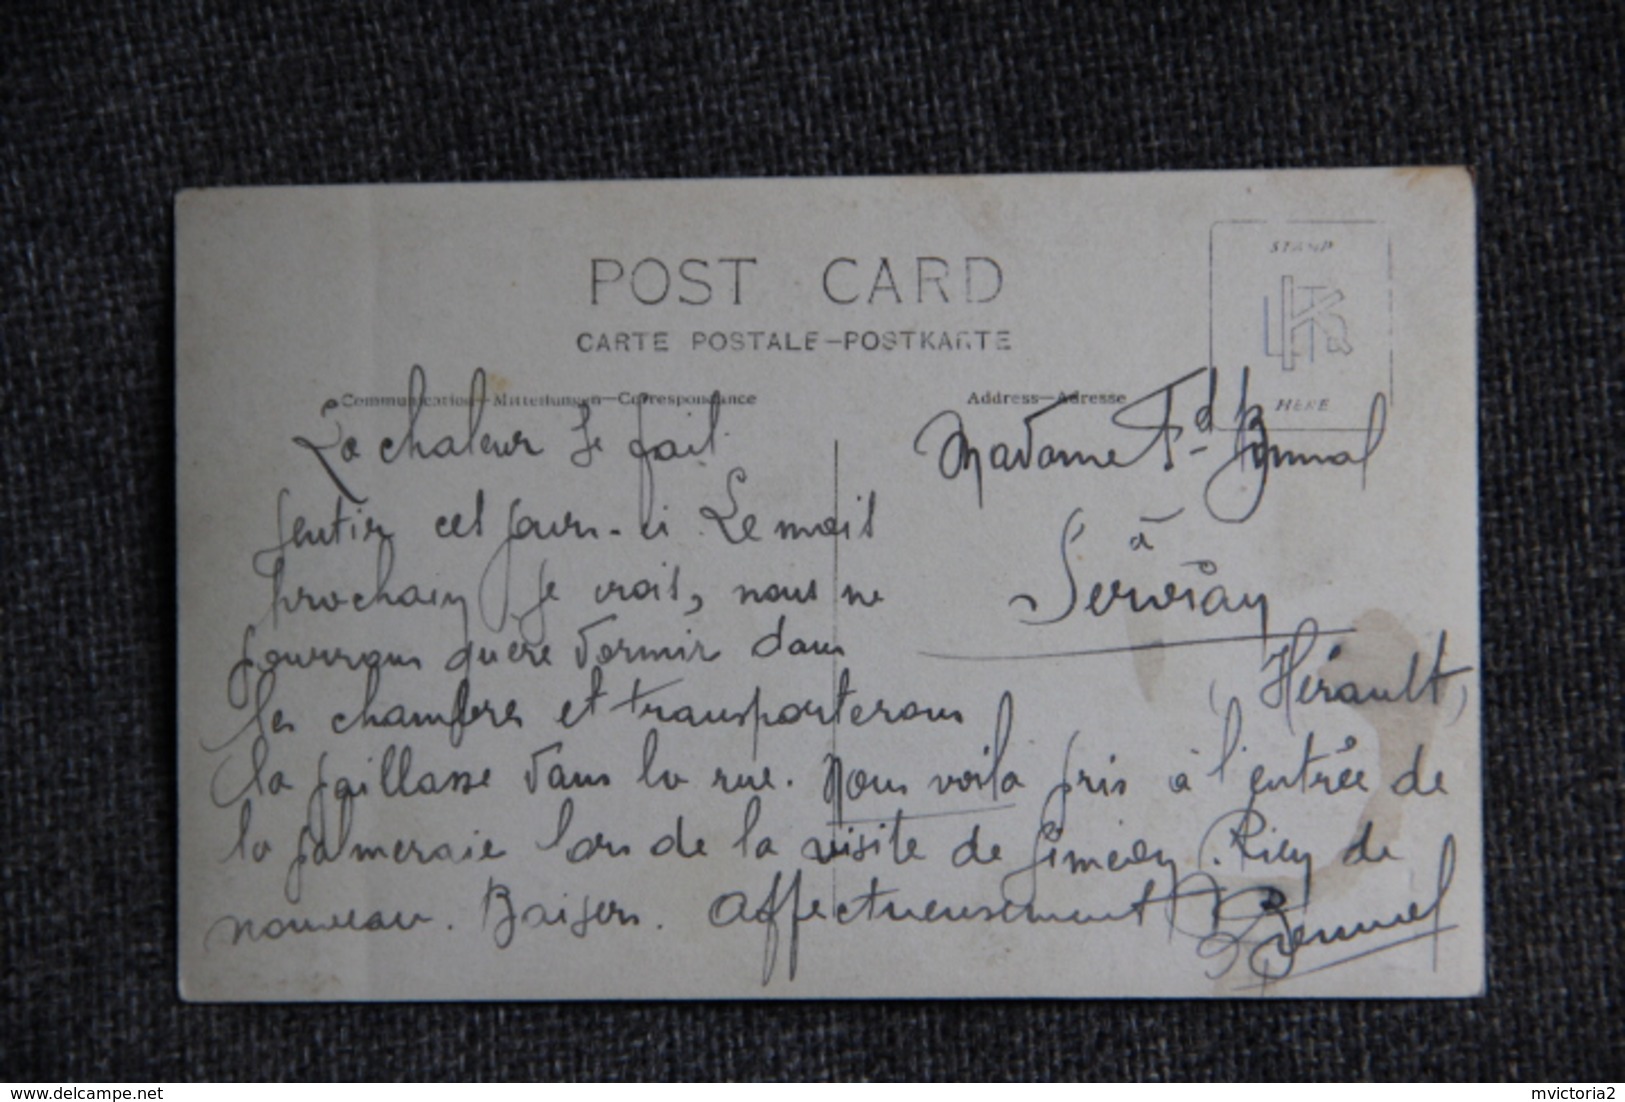 POST CARD
CARTE POSTALE—POSTKARTE
STAMP
HERE
Communication—Mitteilungen—Correspondance
Address—Adresse
La chaleur se fait
sentir ces jours-ci. Le mois
prochain je crois, nous ne
pourrons guère dormir dans
les chambres et transporterons
la paillasse dans la rue. Nous voilà pris à l'entrée de
la palmeraie lors de la visite de Siméon. Rien de
nouveau. Baisers. Affectueusement
Madame F d
à
Servian
(Hérault)
delcampe.net
mvictoria2